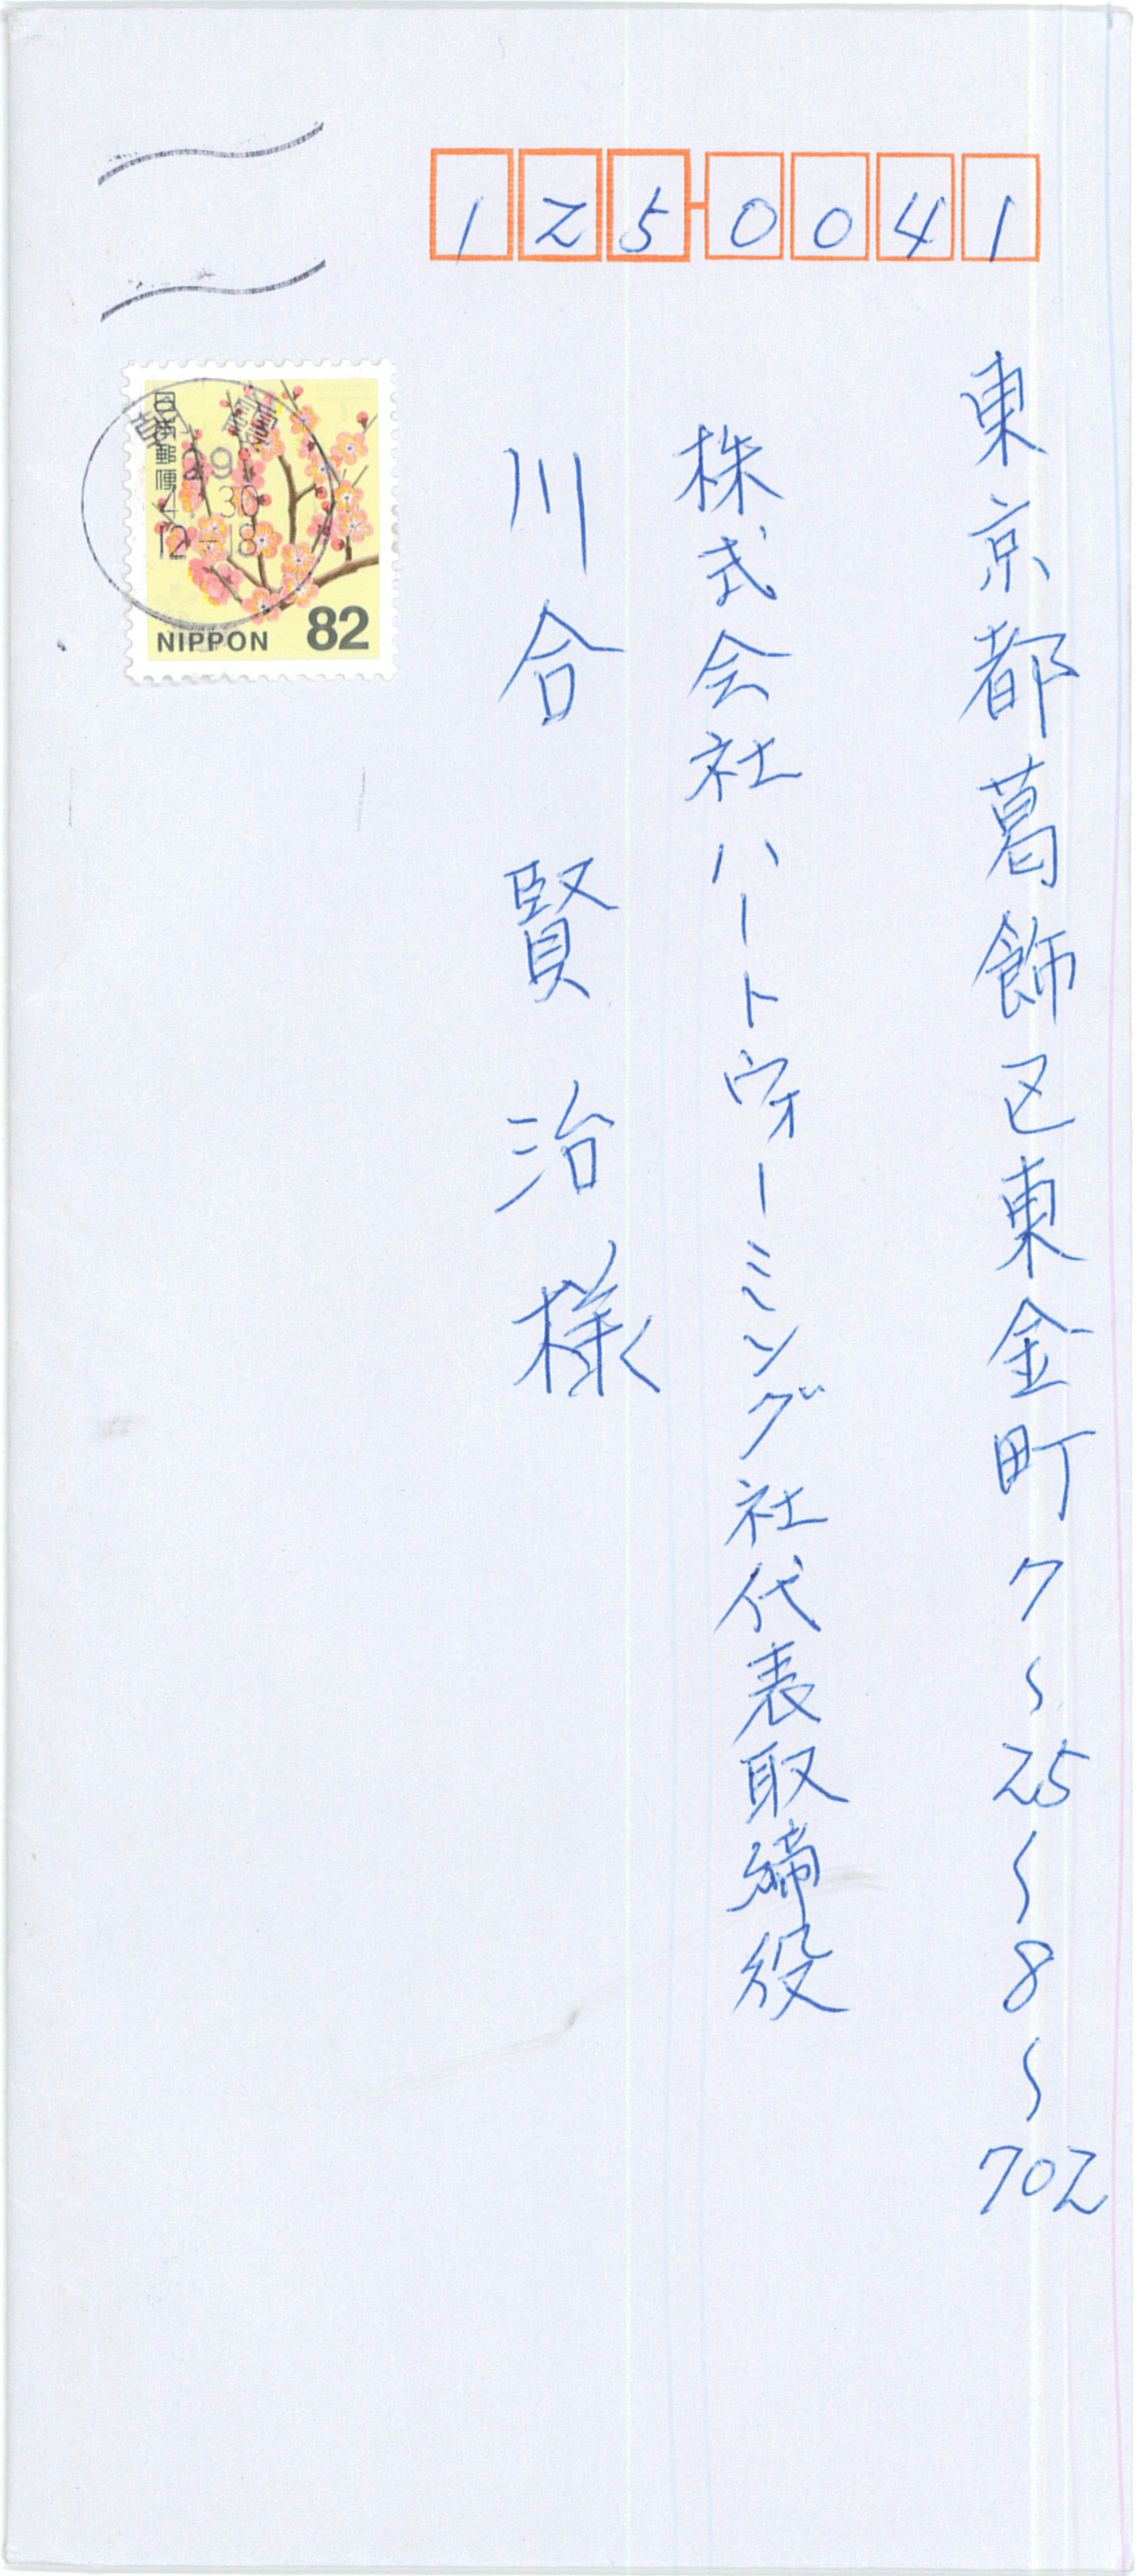 125-0041
東京都葛飾区東金町7〜25〜8〜702
株式会社ハートウォーミング社代表取締役
川合賢治様
日本郵便
29
4 30
12-18
NIPPON 82